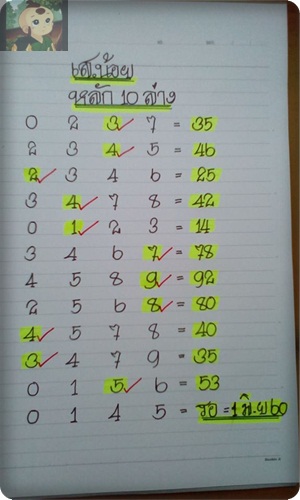 เสน้อย
หลัก 10 ล่าง
0 2 3 7 = 35
2 3 4 5 = 46
2 3 4 6 = 25
3 4 7 8 = 42
0 1 2 3 = 14
3 4 6 7 = 78
4 5 8 9 = 92
2 5 6 8 = 80
4 5 7 8 = 40
3 4 7 9 = 35
0 1 5 6 = 53
0 1 4 5 = รอ = 1 มิ.ย 60